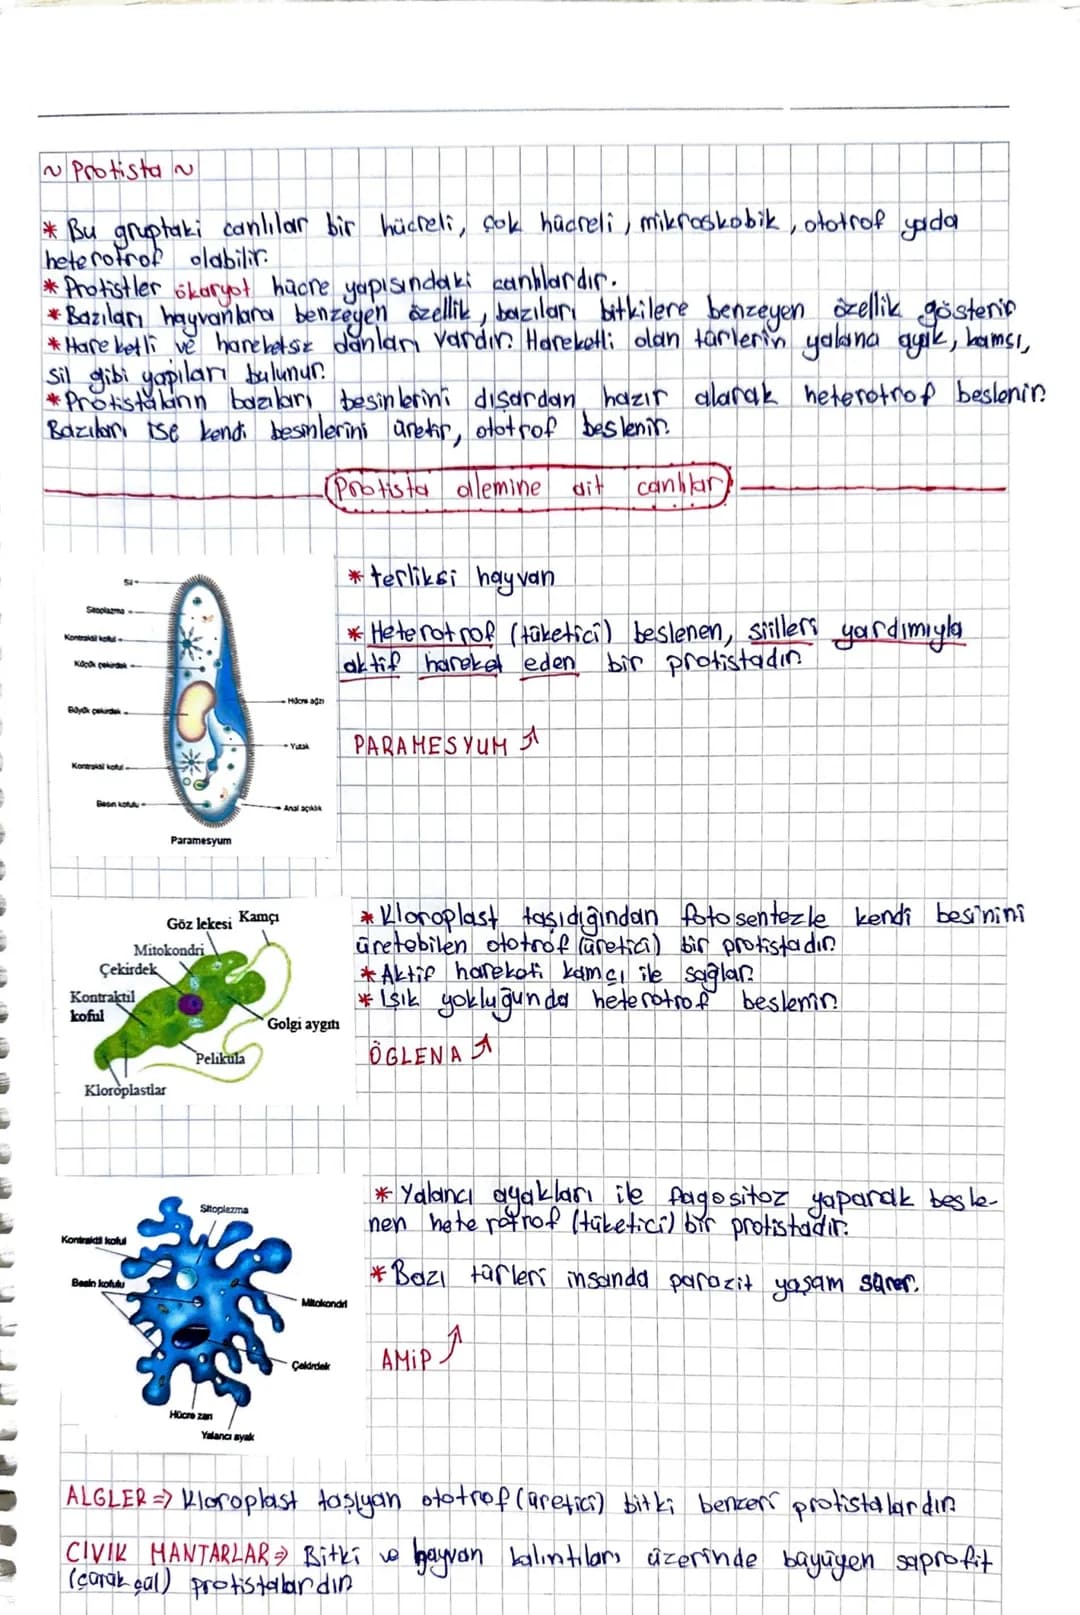 ~ Protista ~
* Bu gruptaki canlılar bir hücreli, çok hücreli, mikroskobik, ototrof yada
heterotrof olabilir.
* Protistler ökaryot hücre yapısındaki canlılardır.
* Bazıları hayvanlara benzeyen özellik, bazıları bitkilere benzeyen özellik gösterir
* Hareketli ve hareketsiz olanları vardır. Hareketli olan türlerin yalancı ayak, kamçı,
sil gibi yapıları bulunur.
* Protistaların bazıları besinlerini dışardan hazır alarak heterotrof beslenir.
Bazıları ise kendi besinlerini üretir, ototrof beslenir.
Protista alemine ait canlılar
* terliksi hayvan
* Heterotrof (tüketici) beslenen, siilleri yardımıyla
aktif hareket eden bir protistadır.
PARAMESYUM
Sil
Sitoplazma
Kontraktil koful
Küçük çekirdek
Büyük çekirdek
Kontraktil koful
Besin kofulu
Hücre ağzı
Yutak
Anal açıklık
Paramesyum
* Kloroplast taşıdığından fotosentezle kendi besinini
üretebilen ototrof (üretici) bir protistadır.
* Aktif hareketi kamçı ile sağlar.
* Işık yokluğunda heterotrof beslenir.
ÖGLENA
Göz lekesi
Kamçı
Mitokondri
Çekirdek
Kontraktil
koful
Golgi aygıtı
Pelikula
Kloroplastlar
* Yalancı ayakları ile fagositoz yaparak besle-
nen heterotrof (tüketici) bir protistadır.
* Bazı türleri insanda parazit yaşam sürer.
AMİP
Sitoplazma
Kontraktil koful
Besin kofulu
Mitokondri
Çekirdek
Hücre zarı
Yalancı ayak
ALGLER => Kloroplast taşıyan ototrof (üretici) bitki benzeri protistalardır.
CIVIK MANTARLAR => Bitki ve hayvan kalıntıları üzerinde büyüyen saprofit
(çürükçül) protistalardır